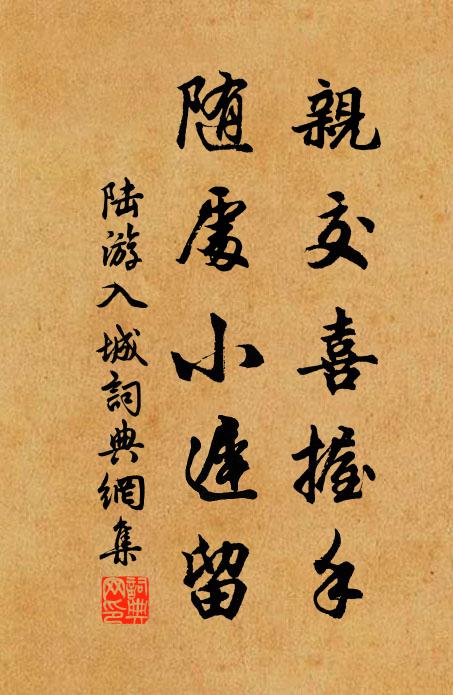 親交喜握手
随處小遲留
陆游入城詞典網集
詞典網印